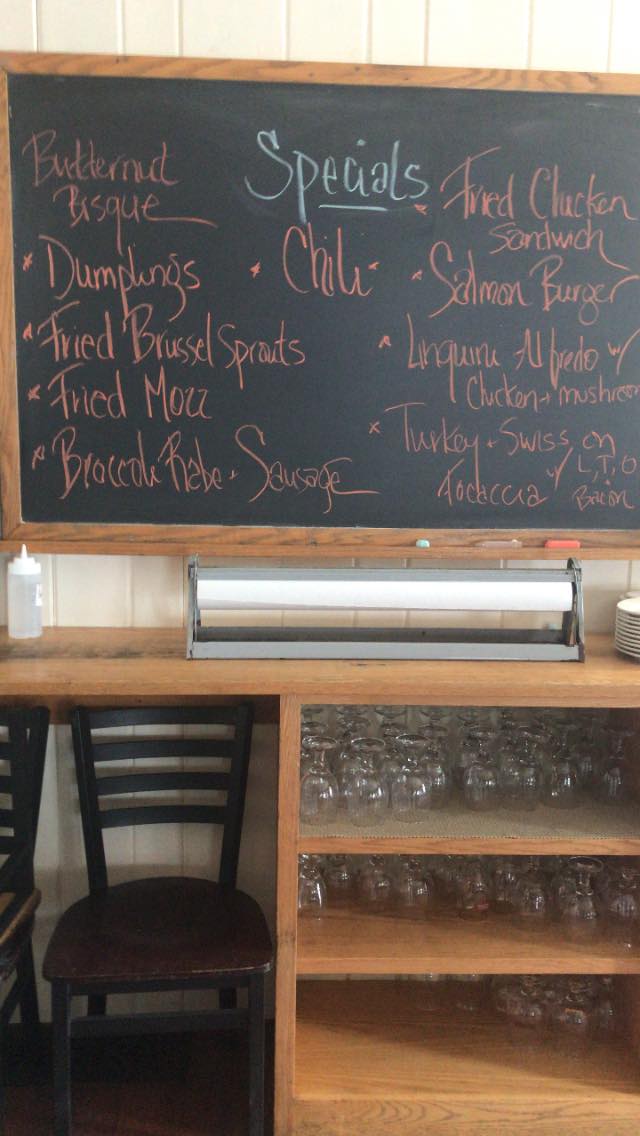 Specials
Butternut
Bisque
* Dumplings
* Fried Brussel Sprouts
* Fried Mozz
* Broccoli Rabe + Sausage
* Chili *
* Fried Chicken
Sandwich
* Salmon Burger
* Linguini Alfredo w/
Chicken + mushroom
* Turkey + Swiss on
Focaccia w/ L, T, O
Bacon